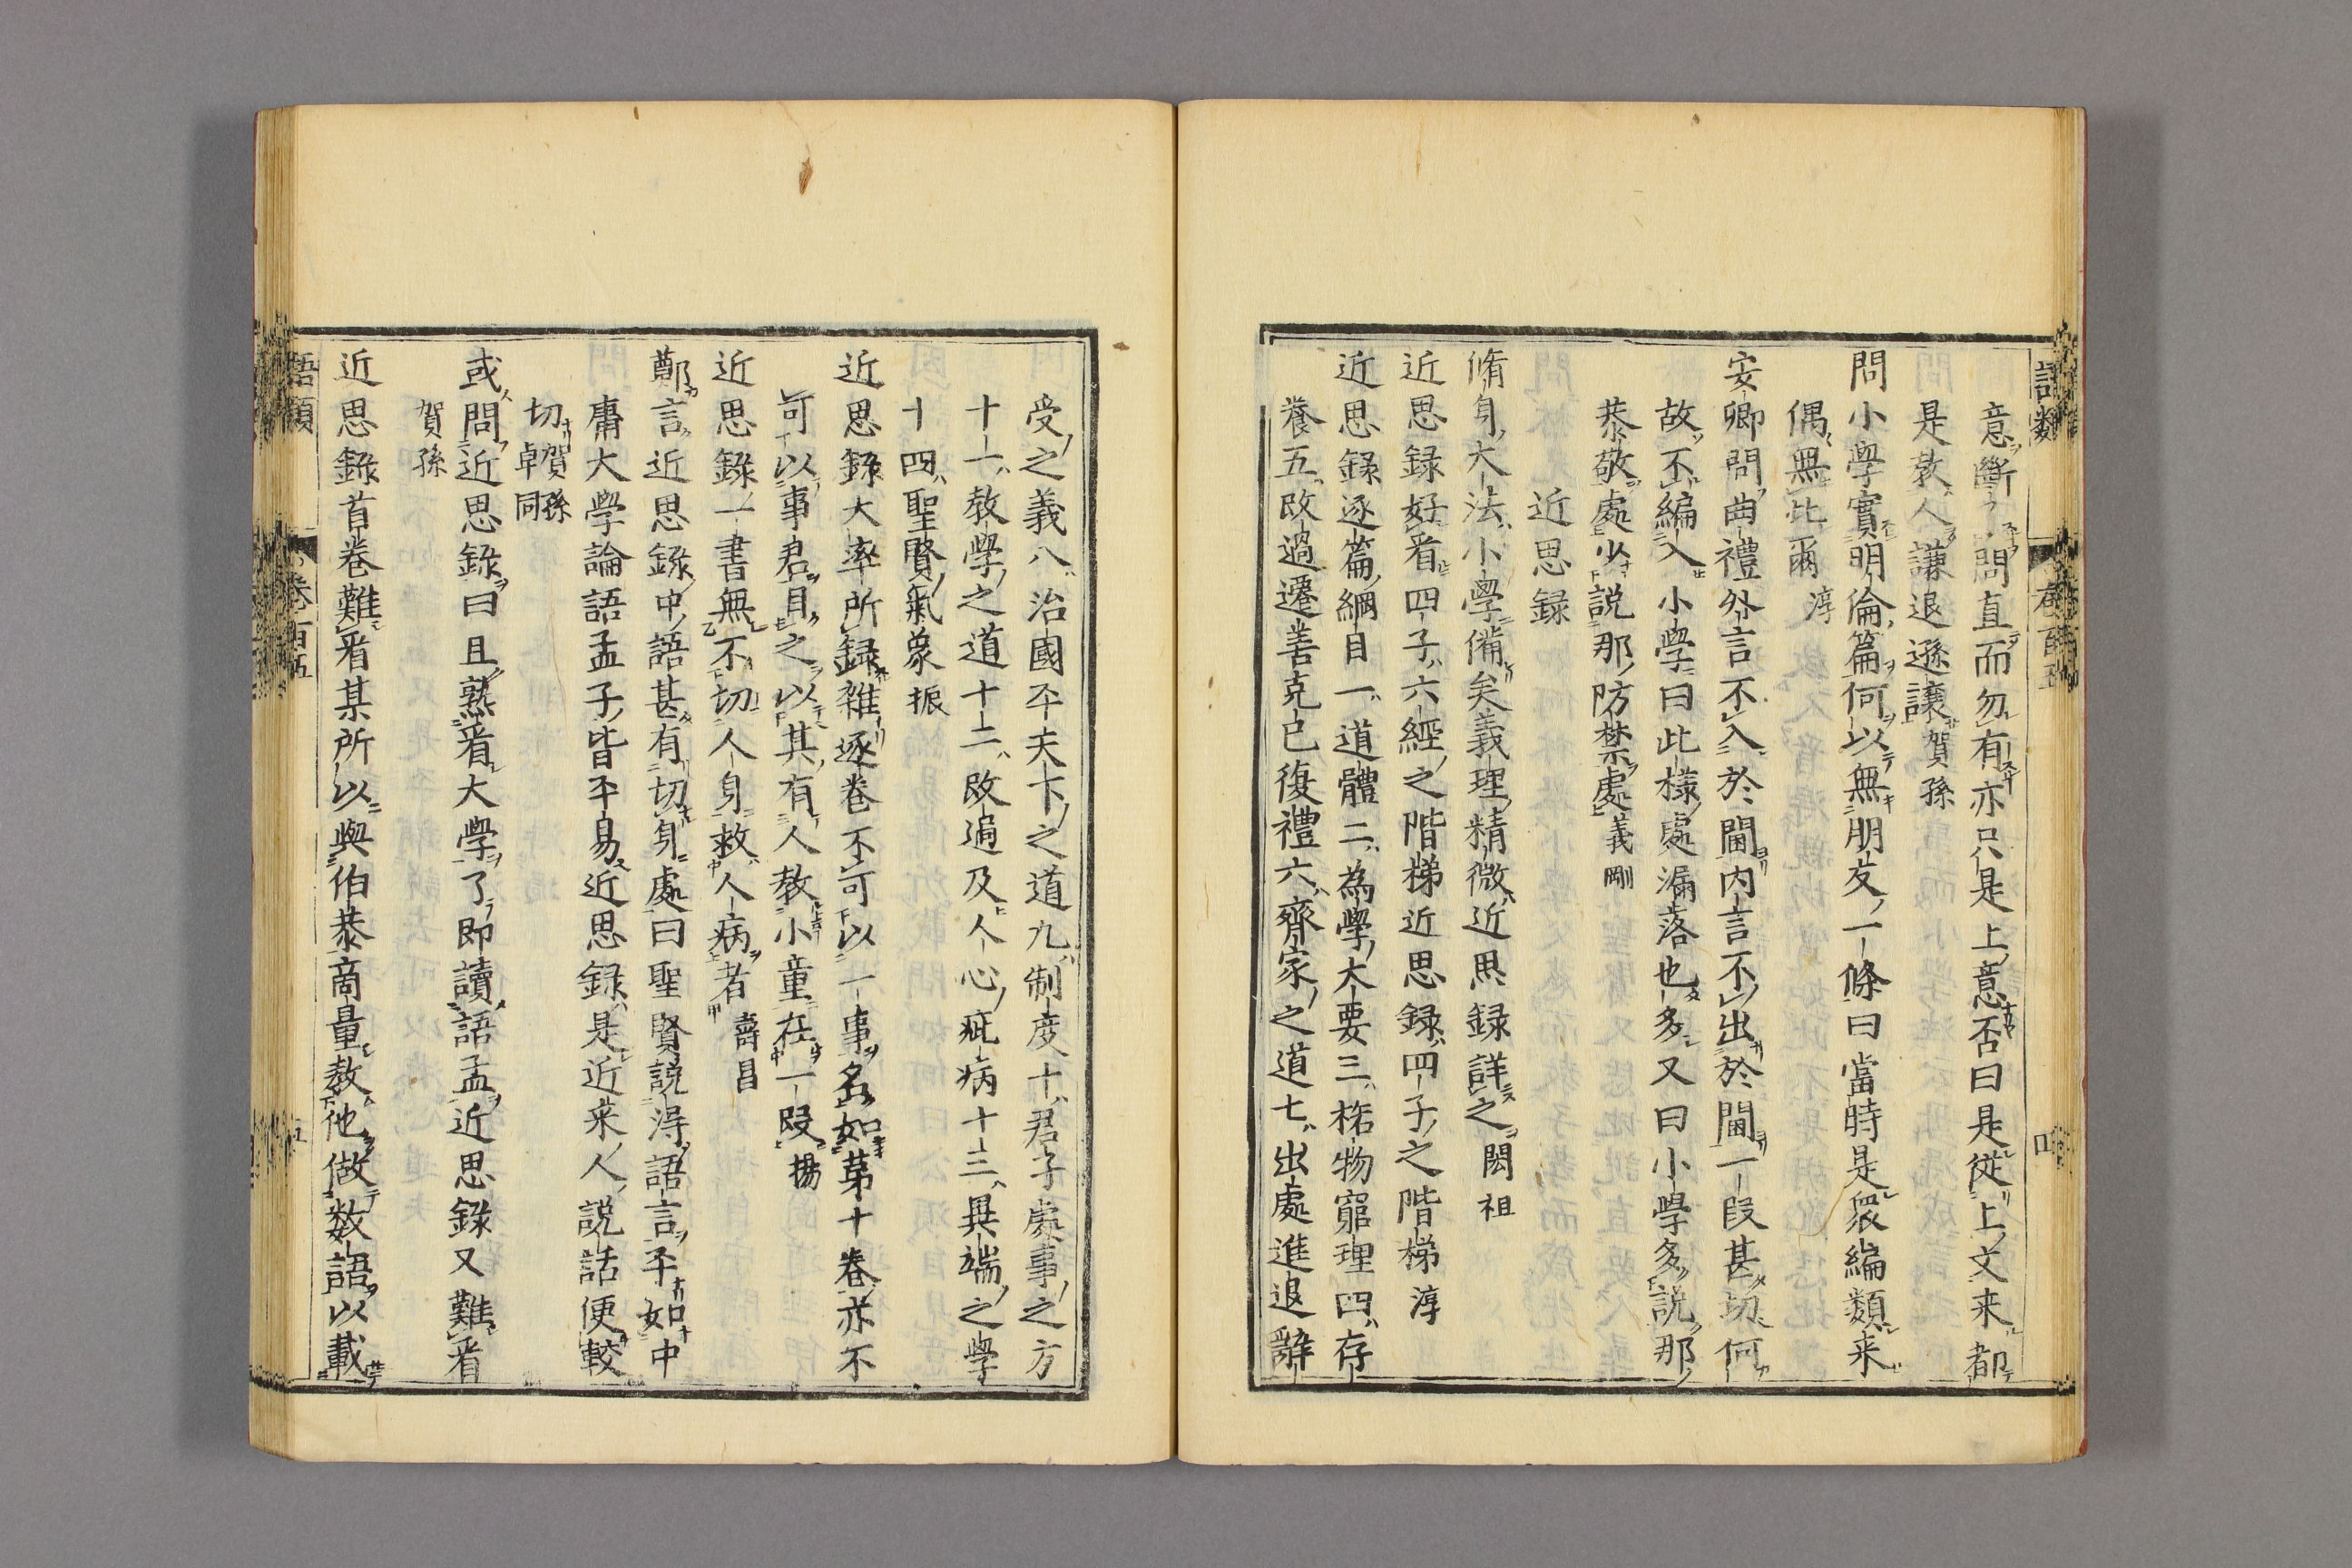 語類 卷百五 四
意斷了問直而勿有亦只是上意否曰是從上文来都
是教人謙退遜讓賀孫
問小學實明倫篇何以無朋友一條曰當時是衆編類来
偶無此爾淳
安卿問曲禮外言不入於閫内言不出於閫一段甚切何
故不編入小學曰此樣處漏落也多又曰小學多説那
恭敬處少説那防禁處義剛
近思録
脩身大法小學備矣義理精微近思録詳之閎祖
近思録好看四子六經之階梯近思録四子之階梯淳
近思録逐篇綱目一道體二為學大要三格物窮理四存
養五改過遷善克己復禮六齊家之道七出處進退辭
受之義八治國平天下之道九制度十君子處事之方
十一教學之道十二改過及人心疵病十三異端之學
十四聖賢氣象振
近思録大率所録雜逐卷不可以一事名如第十卷亦不
可以事君目之以其有人教小童在一段揚
近思錄一書無不切人身救人病者壽昌
鄭言近思録中語甚有切身處曰聖賢説得語言平如中
庸大學論語孟子皆平易近思録是近来人説話便較
切賀孫卓同
或問近思錄曰且熟看大學了即讀語孟近思錄又難看
賀孫
近思錄首卷難看某所以與伯恭商量教他做数語以載
語類 卷百五 五